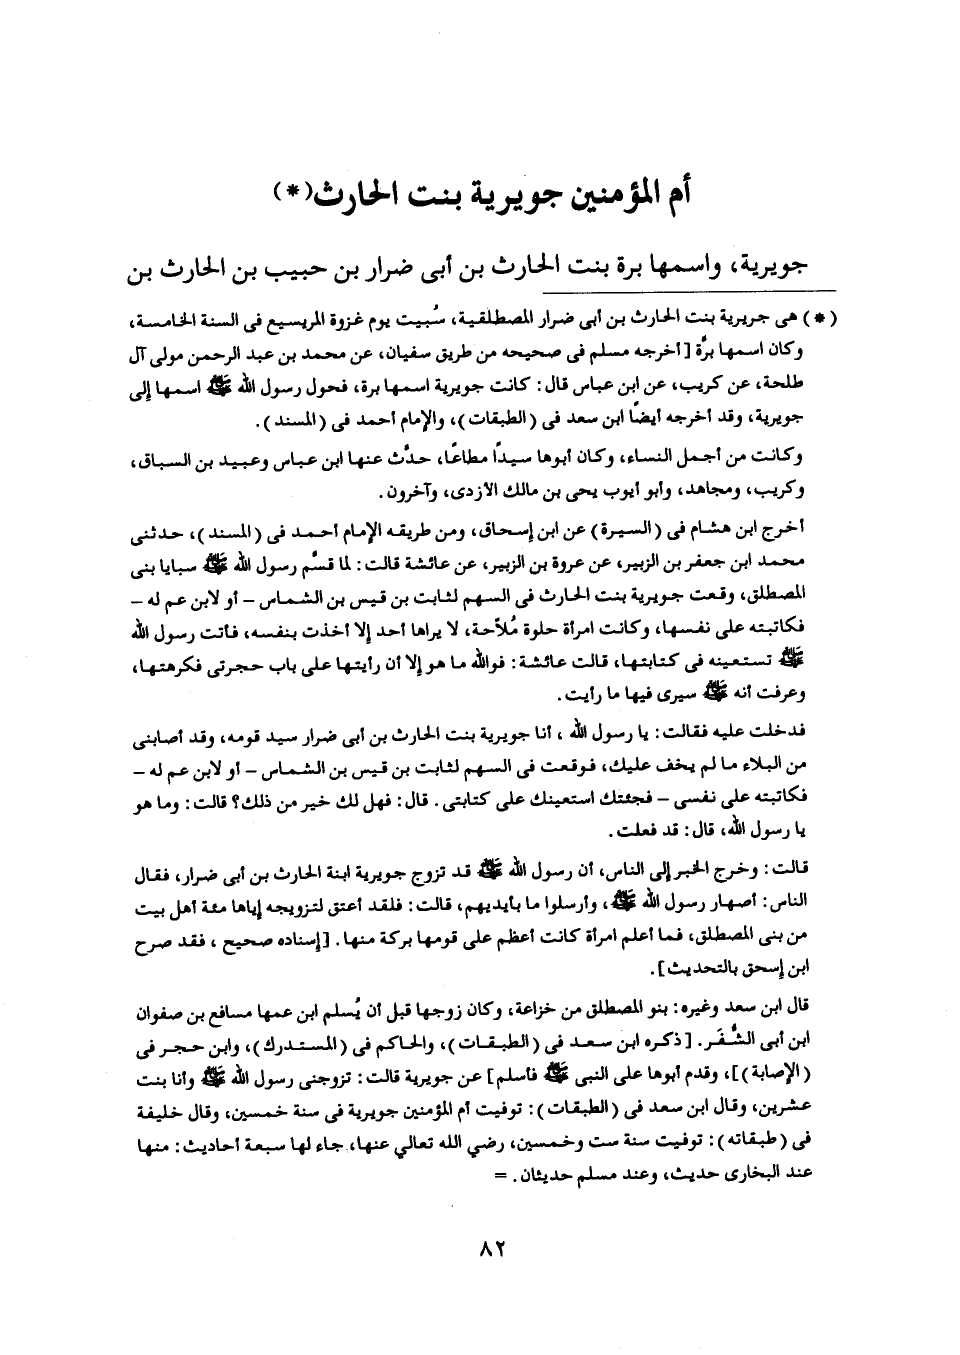 أم المؤمنين جويرية بنت الحارث(*)
جويرية، واسمها برة بنت الحارث بن أبى ضرار بن حبيب بن الحارث بن
(*) هى جريرية بنت الحارث بن أبى ضرار المصطلقية، سُبيت يوم غزوة المريسيع فى السنة الخامسة،
وكان اسمها برَّة [أخرجه مسلم فى صحيحه من طريق سفيان، عن محمد بن عبد الرحمن مولى آل
طلحة، عن كريب، عن ابن عباس قال: كانت جويرية اسمها برة، فحول رسول الله ﷺ اسمها إلى
جويرية، وقد أخرجه أيضًا ابن سعد فى (الطبقات)، والإمام أحمد فى (المسند).
وكانت من أجمل النساء، وكان أبوها سيدًا مطاعًا، حدَّث عنها ابن عباس وعبيد بن السباق،
وكريب، ومجاهد، وأبو أيوب يحى بن مالك الأزدى، وآخرون.
أخرج ابن هشام فى (السيرة) عن ابن إسحاق، ومن طريقه الإمام أحمد فى (المسند)، حدثنى
محمد ابن جعفر بن الزبير، عن عروة بن الزبير، عن عائشة قالت: لما قسَّم رسول الله ﷺ سبايا بنى
المصطلق، وقعت جويرية بنت الحارث فى السهم لثابت بن قيس بن الشماس – أو لابن عم له –
فكاتبته على نفسها، وكانت امرأة حلوة مُلاَّحة، لا يراها أحد إلا أخذت بنفسه، فأتت رسول الله
ﷺ تستعينه فى كتابتها، قالت عائشة: فوالله ما هو إلا أن رأيتها على باب حجرتى فكرهتها،
وعرفت أنه ﷺ سيرى فيها ما رأيت.
فدخلت عليه فقالت: يا رسول الله، أنا جويرية بنت الحارث بن أبى ضرار سيد قومه، وقد أصابنى
من البلاء ما لم يخف عليك، فوقعت فى السهم لثابت بن قيس بن الشماس – أو لابن عم له –
فكاتبته على نفسى – فجئتك استعينك على كتابتى. قال: فهل لك خير من ذلك؟ قالت: وما هو
يا رسول الله، قال: قد فعلت.
قالت: وخرج الخبر إلى الناس، أن رسول الله ﷺ قد تزوج جويرية ابنة الحارث بن أبى ضرار، فقال
الناس: أصهار رسول الله ﷺ، وأرسلوا ما بأيديهم، قالت: فلقد أعتق لتزويجه إياها مئة أهل بيت
من بنى المصطلق، فما أعلم امرأة كانت أعظم على قومها بركة منها. [إسناده صحيح، فقد صرح
ابن إسحق بالتحديث].
قال ابن سعد وغيره: بنو المصطلق من خزاعة، وكان زوجها قبل أن يُسلم ابن عمها مسافع بن صفوان
ابن أبى الشُّفَر. [ذكره ابن سعد فى (الطبقات)، والحاكم فى (المستدرك)، وابن حجر فى
(الإصابة)]، وقدم أبوها على النبى ﷺ فأسلم] عن جويرية قالت: تزوجنى رسول الله ﷺ وأنا بنت
عشرين، وقال ابن سعد فى (الطبقات): توفيت أم المؤمنين جويرية فى سنة خمسين، وقال خليفة
فى (طبقاته): توفيت سنة ست وخمسين، رضي الله تعالي عنها، جاء لها سبعة أحاديث: منها
عند البخارى حديث، وعند مسلم حديثان. =
٨٢